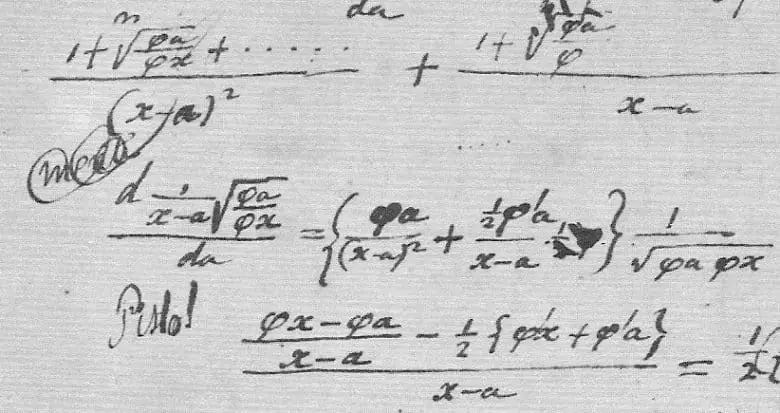 da
1 + \sqrt[n]{\frac{φa}{φx}} + ..... / (x-a)² + 1 + \sqrt{\frac{φa}{φ}} / x-a
.....
d \frac{1}{x-a} \sqrt{\frac{φa}{φx}} / da = { \frac{φa}{(x-a)²} + \frac{½φ'a}{x-a} } \frac{1}{\sqrt{φa φx}}
\frac{φx-φa}{x-a} - ½{φ'x + φ'a} / x-a = ½